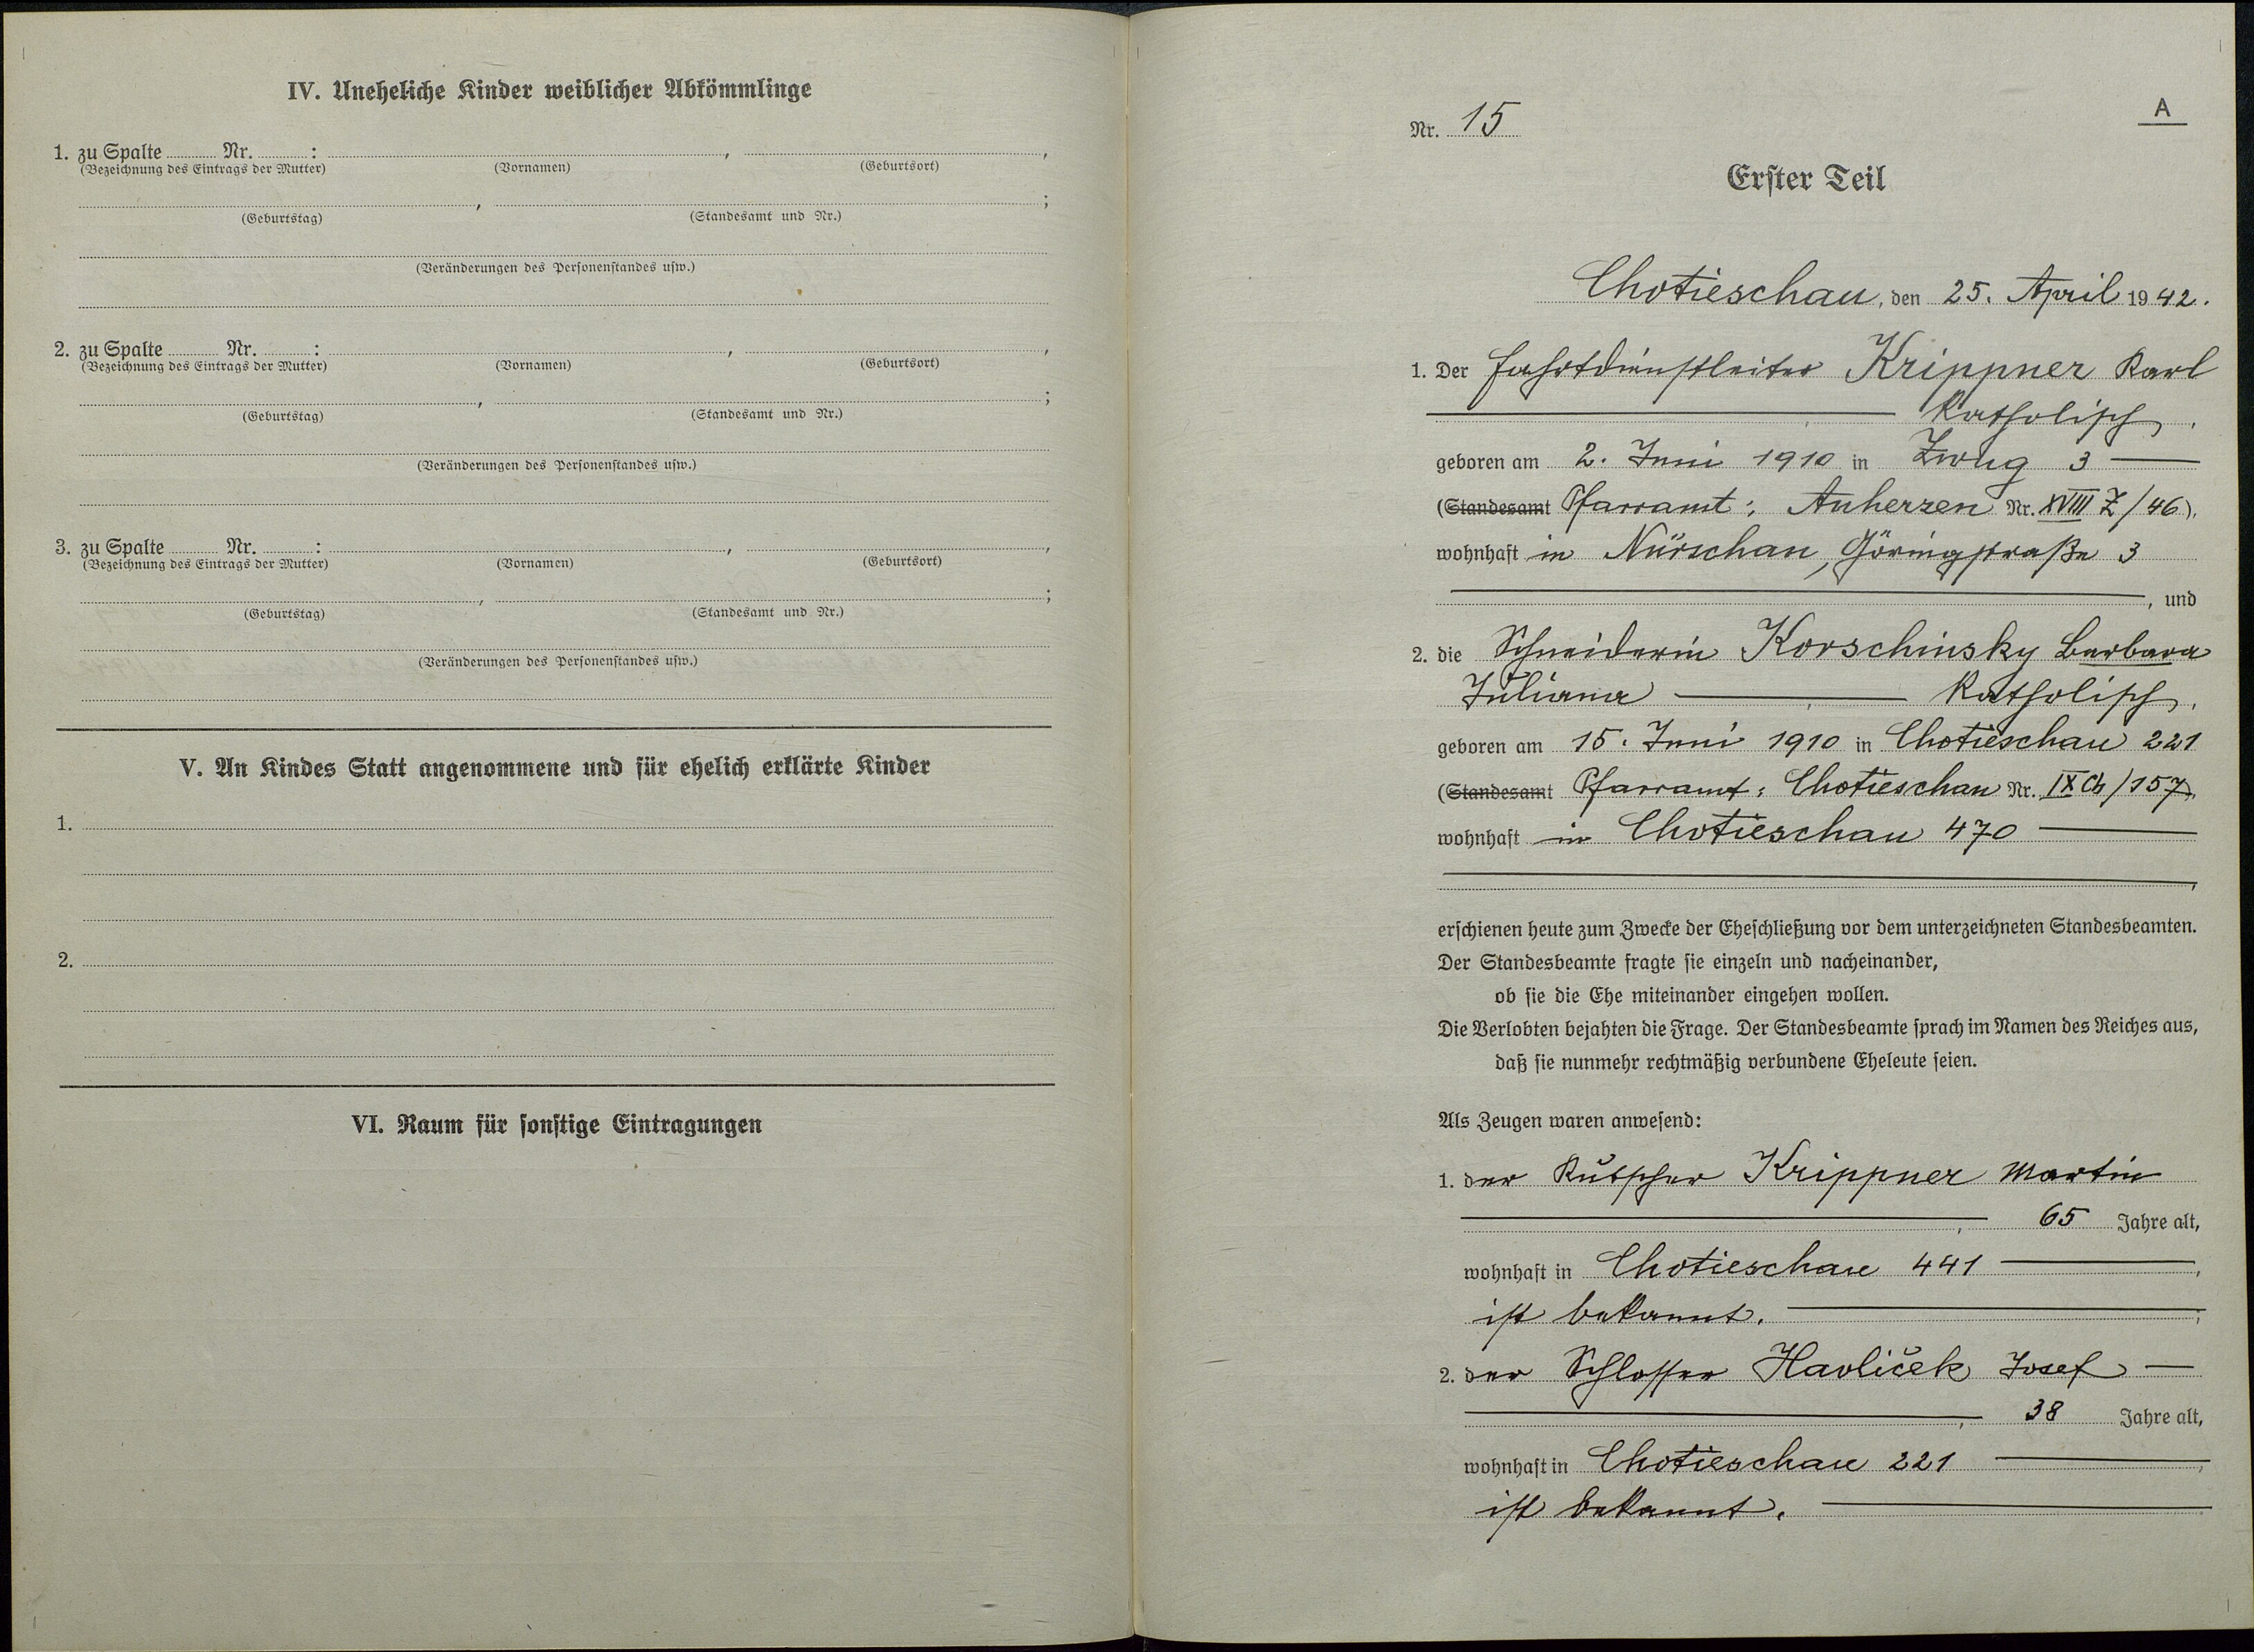 IV. Uneheliche Kinder weiblicher Abkömmlinge
1. zu Spalte Nr. : , ,
(Bezeichnung des Eintrags der Mutter) (Vornamen) (Geburtsort)
, ;
(Geburtstag) (Standesamt und Nr.)
(Veränderungen des Personenstandes usw.)
2. zu Spalte Nr. : , ,
(Bezeichnung des Eintrags der Mutter) (Vornamen) (Geburtsort)
, ;
(Geburtstag) (Standesamt und Nr.)
(Veränderungen des Personenstandes usw.)
3. zu Spalte Nr. : , ,
(Bezeichnung des Eintrags der Mutter) (Vornamen) (Geburtsort)
, ;
(Geburtstag) (Standesamt und Nr.)
(Veränderungen des Personenstandes usw.)
V. An Kindes Statt angenommene und für ehelich erklärte Kinder
1.
2.
VI. Raum für sonstige Eintragungen
A
Nr. 15
Erster Teil
Chotieschau, den 25. April 1942.
1. Der Fahrtdienstleiter Krippner Karl
— katholisch,
geboren am 2. Juni 1910 in Zwug 3 —
(Standesamt Pfarramt: Auherzen Nr. XVIII Z/46),
wohnhaft in Nürschan, Göringstraße 3
—, und
2. die Schneiderin Korschinsky Barbara
Juliana — katholisch,
geboren am 15. Juni 1910 in Chotieschau 221
(Standesamt Pfarramt: Chotieschau Nr. IX Ch/157),
wohnhaft in Chotieschau 470 —
—,
erschienen heute zum Zwecke der Eheschließung vor dem unterzeichneten Standesbeamten.
Der Standesbeamte fragte sie einzeln und nacheinander,
ob sie die Ehe miteinander eingehen wollen.
Die Verlobten bejahten die Frage. Der Standesbeamte sprach im Namen des Reiches aus,
daß sie nunmehr rechtmäßig verbundene Eheleute seien.
Als Zeugen waren anwesend:
1. der Kutscher Krippner Martin
—, 65 Jahre alt,
wohnhaft in Chotieschau 441 —,
ist bekannt. —;
2. der Schlosser Havliček Josef —
—, 38 Jahre alt,
wohnhaft in Chotieschau 221 —,
ist bekannt. —